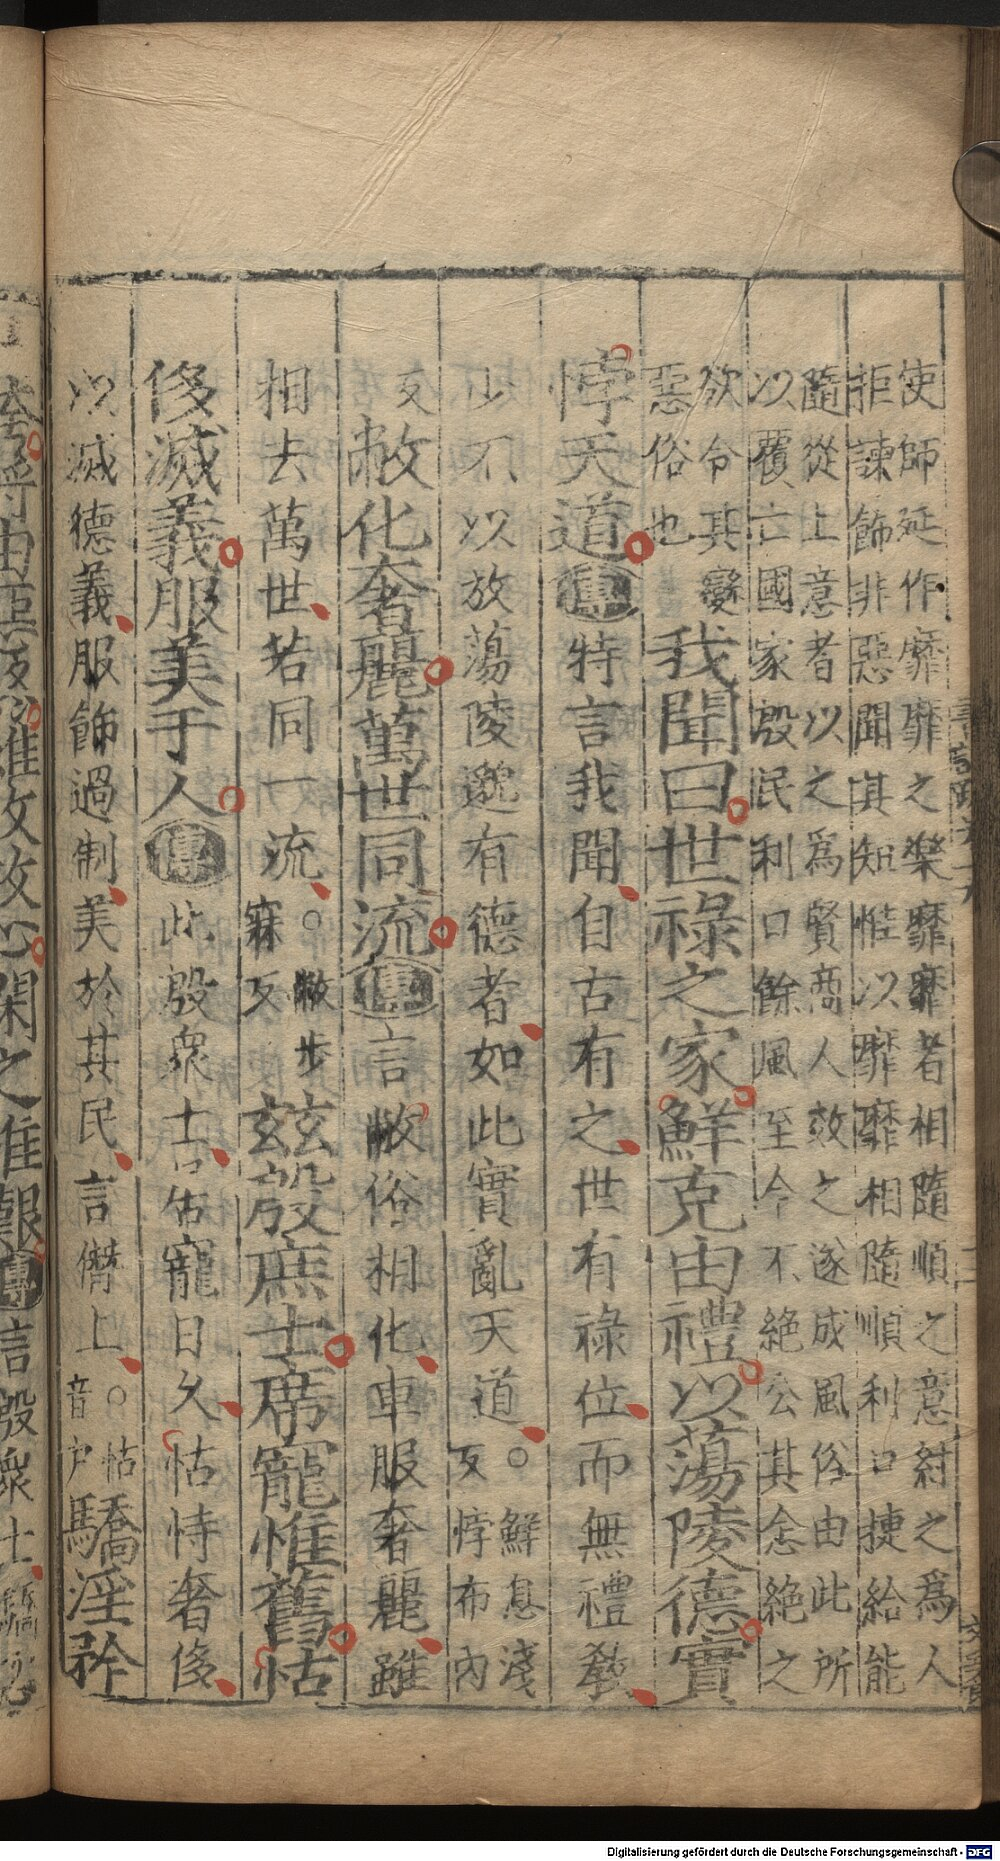 使師延作靡靡之樂靡靡者相隨順之意紂之爲人
拒諫飾非惡聞其短惟以靡靡相隨順利口捷給能
隨從上意者以之爲賢商人效之遂成風俗由此所
以覆亡國家殷民利口餘風至今不絕公其念絕之
欲令其變
惡俗也
我聞曰世祿之家鮮克由禮以蕩陵德實
悖天道傳特言我聞自古有之世有祿位而無禮教
少不以放蕩陵邈有德者如此實亂天道○鮮息淺
反悖布內
反敝化奢麗萬世同流傳言敝俗相化車服奢麗雖
相去萬世若同一流○敝步
寐反
玆殷庶士席寵惟舊怙
侈滅義服美于人傳此殷眾士居寵日久怙恃奢侈
以滅德義服飾過制美於其民言僭上○怙
音户
驕淫矜
Digitalisierung gefördert durch die Deutsche Forschungsgemeinschaft - DFG